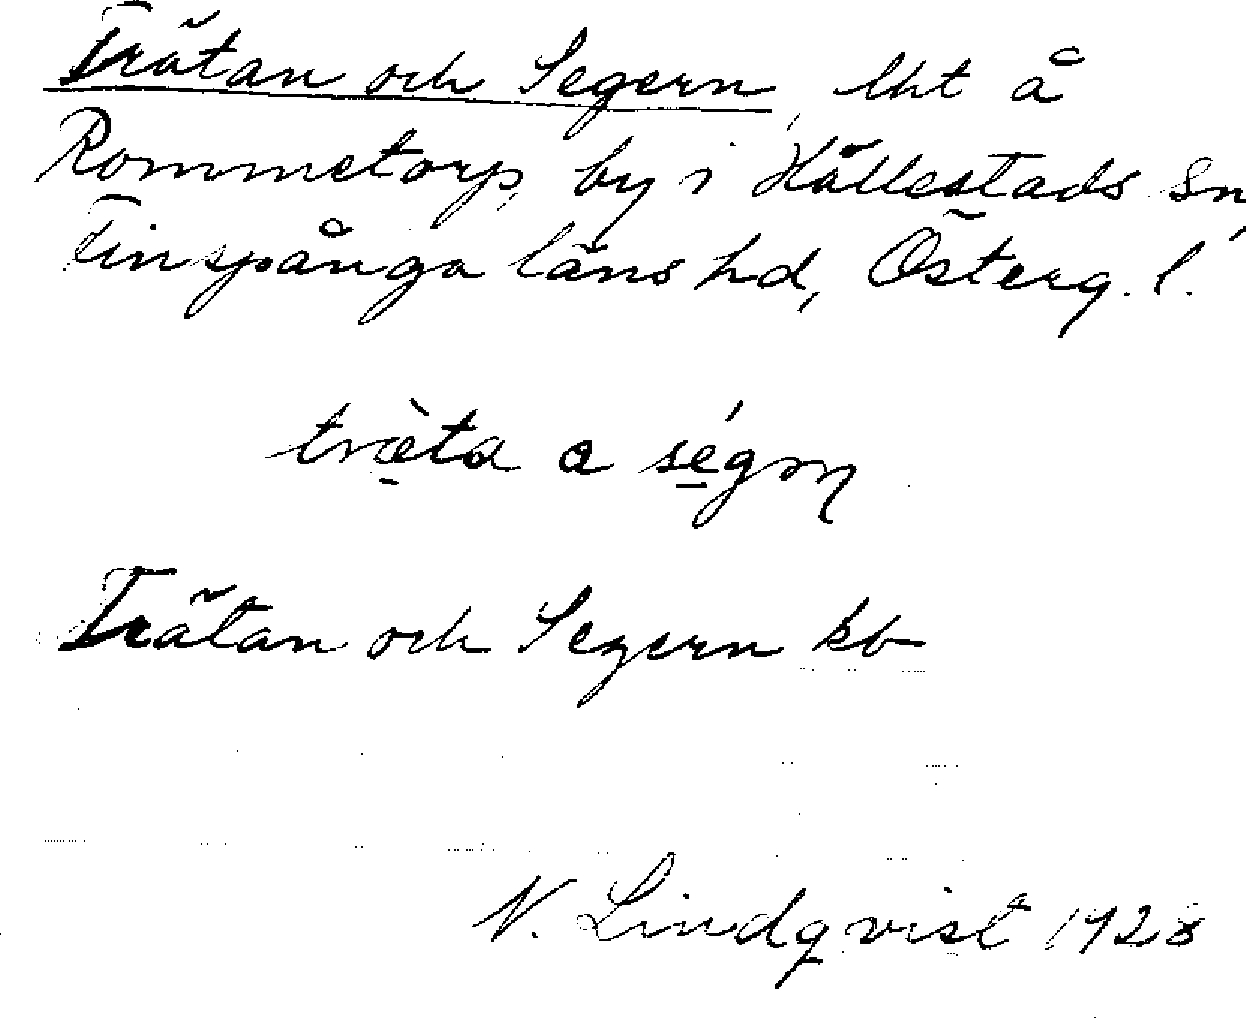 Trätan och Segern, lht å
Rommetorp, by i Hällestads sn,
Finspånga läns hd, Österg. l.
træ̀ta a ségon
Trätan och Segern kb
N. Lindqvist 1928